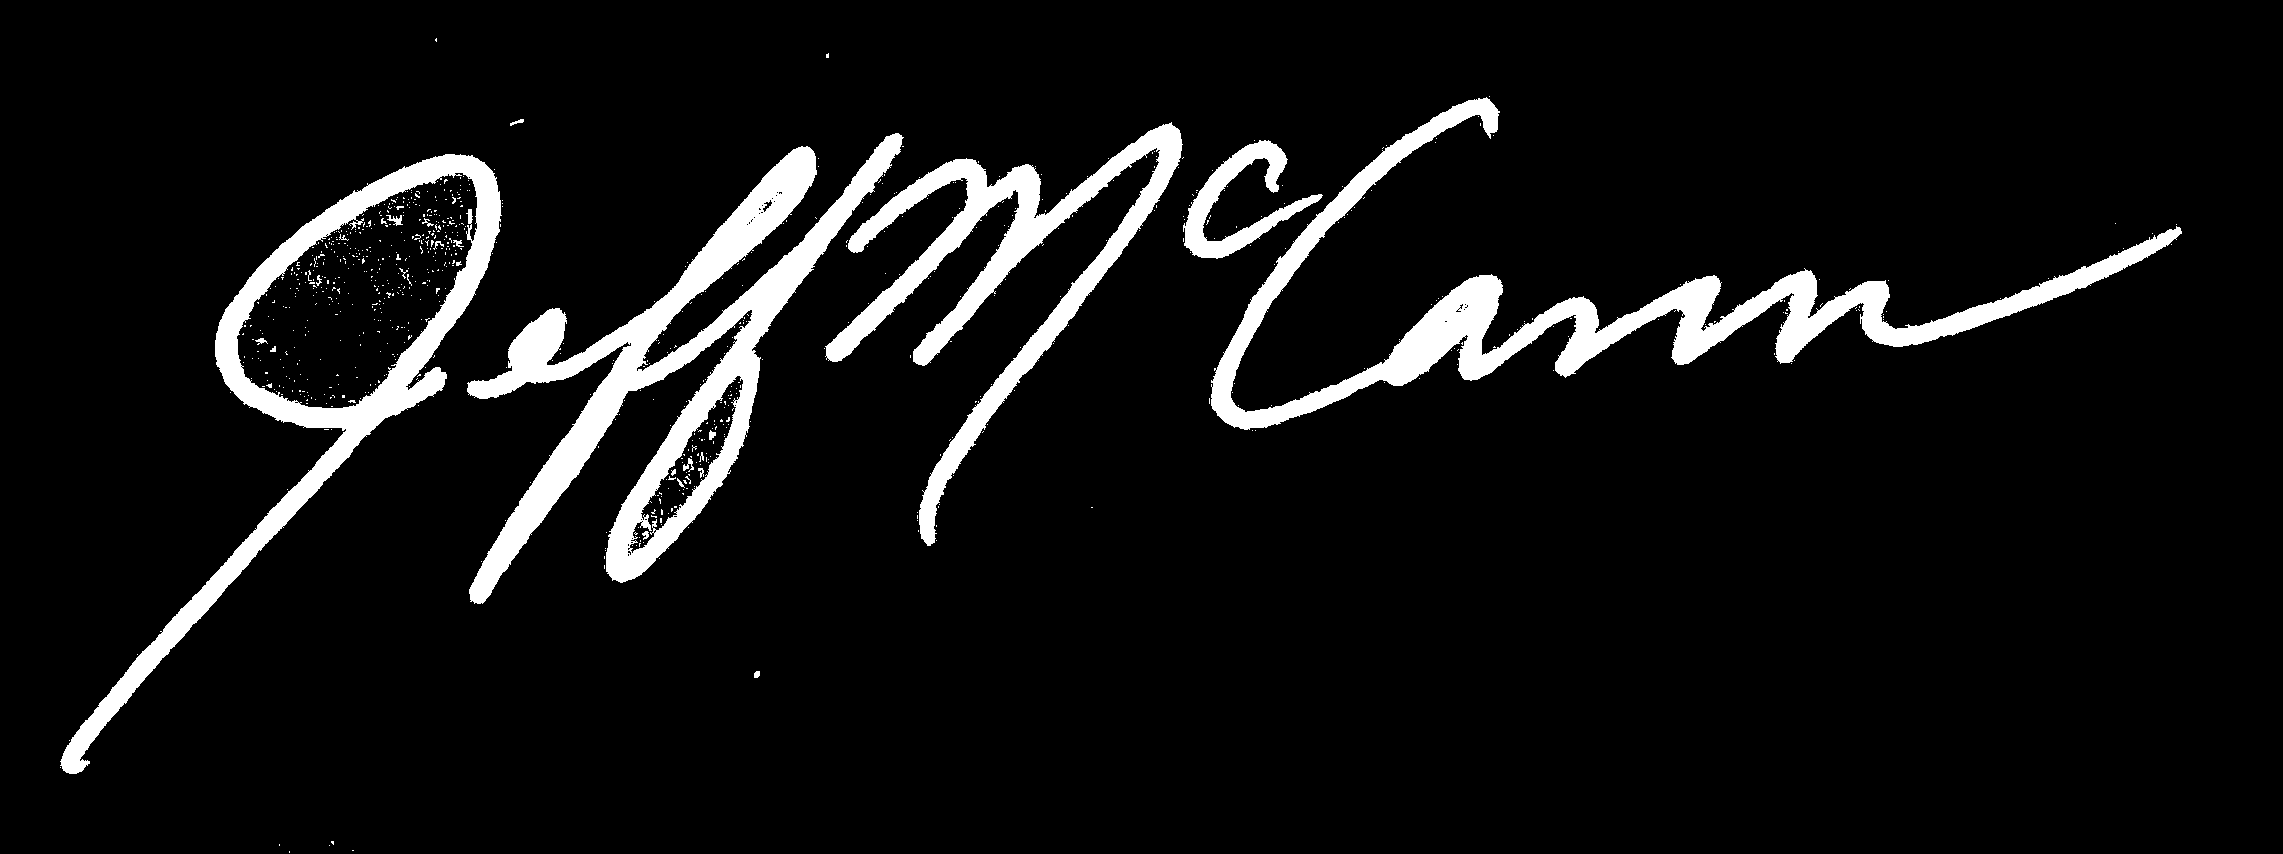 Jeff McCann